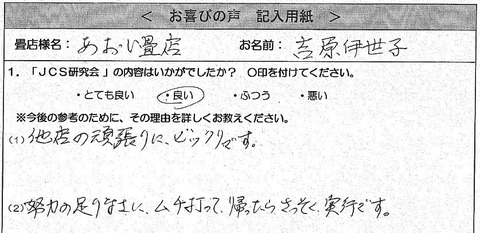 ＜ お喜びの声 記入用紙 ＞
畳店様名： あおい畳店 お名前： 吉原伊世子
1．「JCS研究会」の内容はいかがでしたか？ ○印を付けてください。
・とても良い ・良い ・ふつう ・悪い
※今後の参考のために、その理由を詳しくお教えください。
(1) 他店の頑張りに、ビックリです。
(2) 努力の足りなさに、ムチ打って、帰ったらさっそく、実行です。